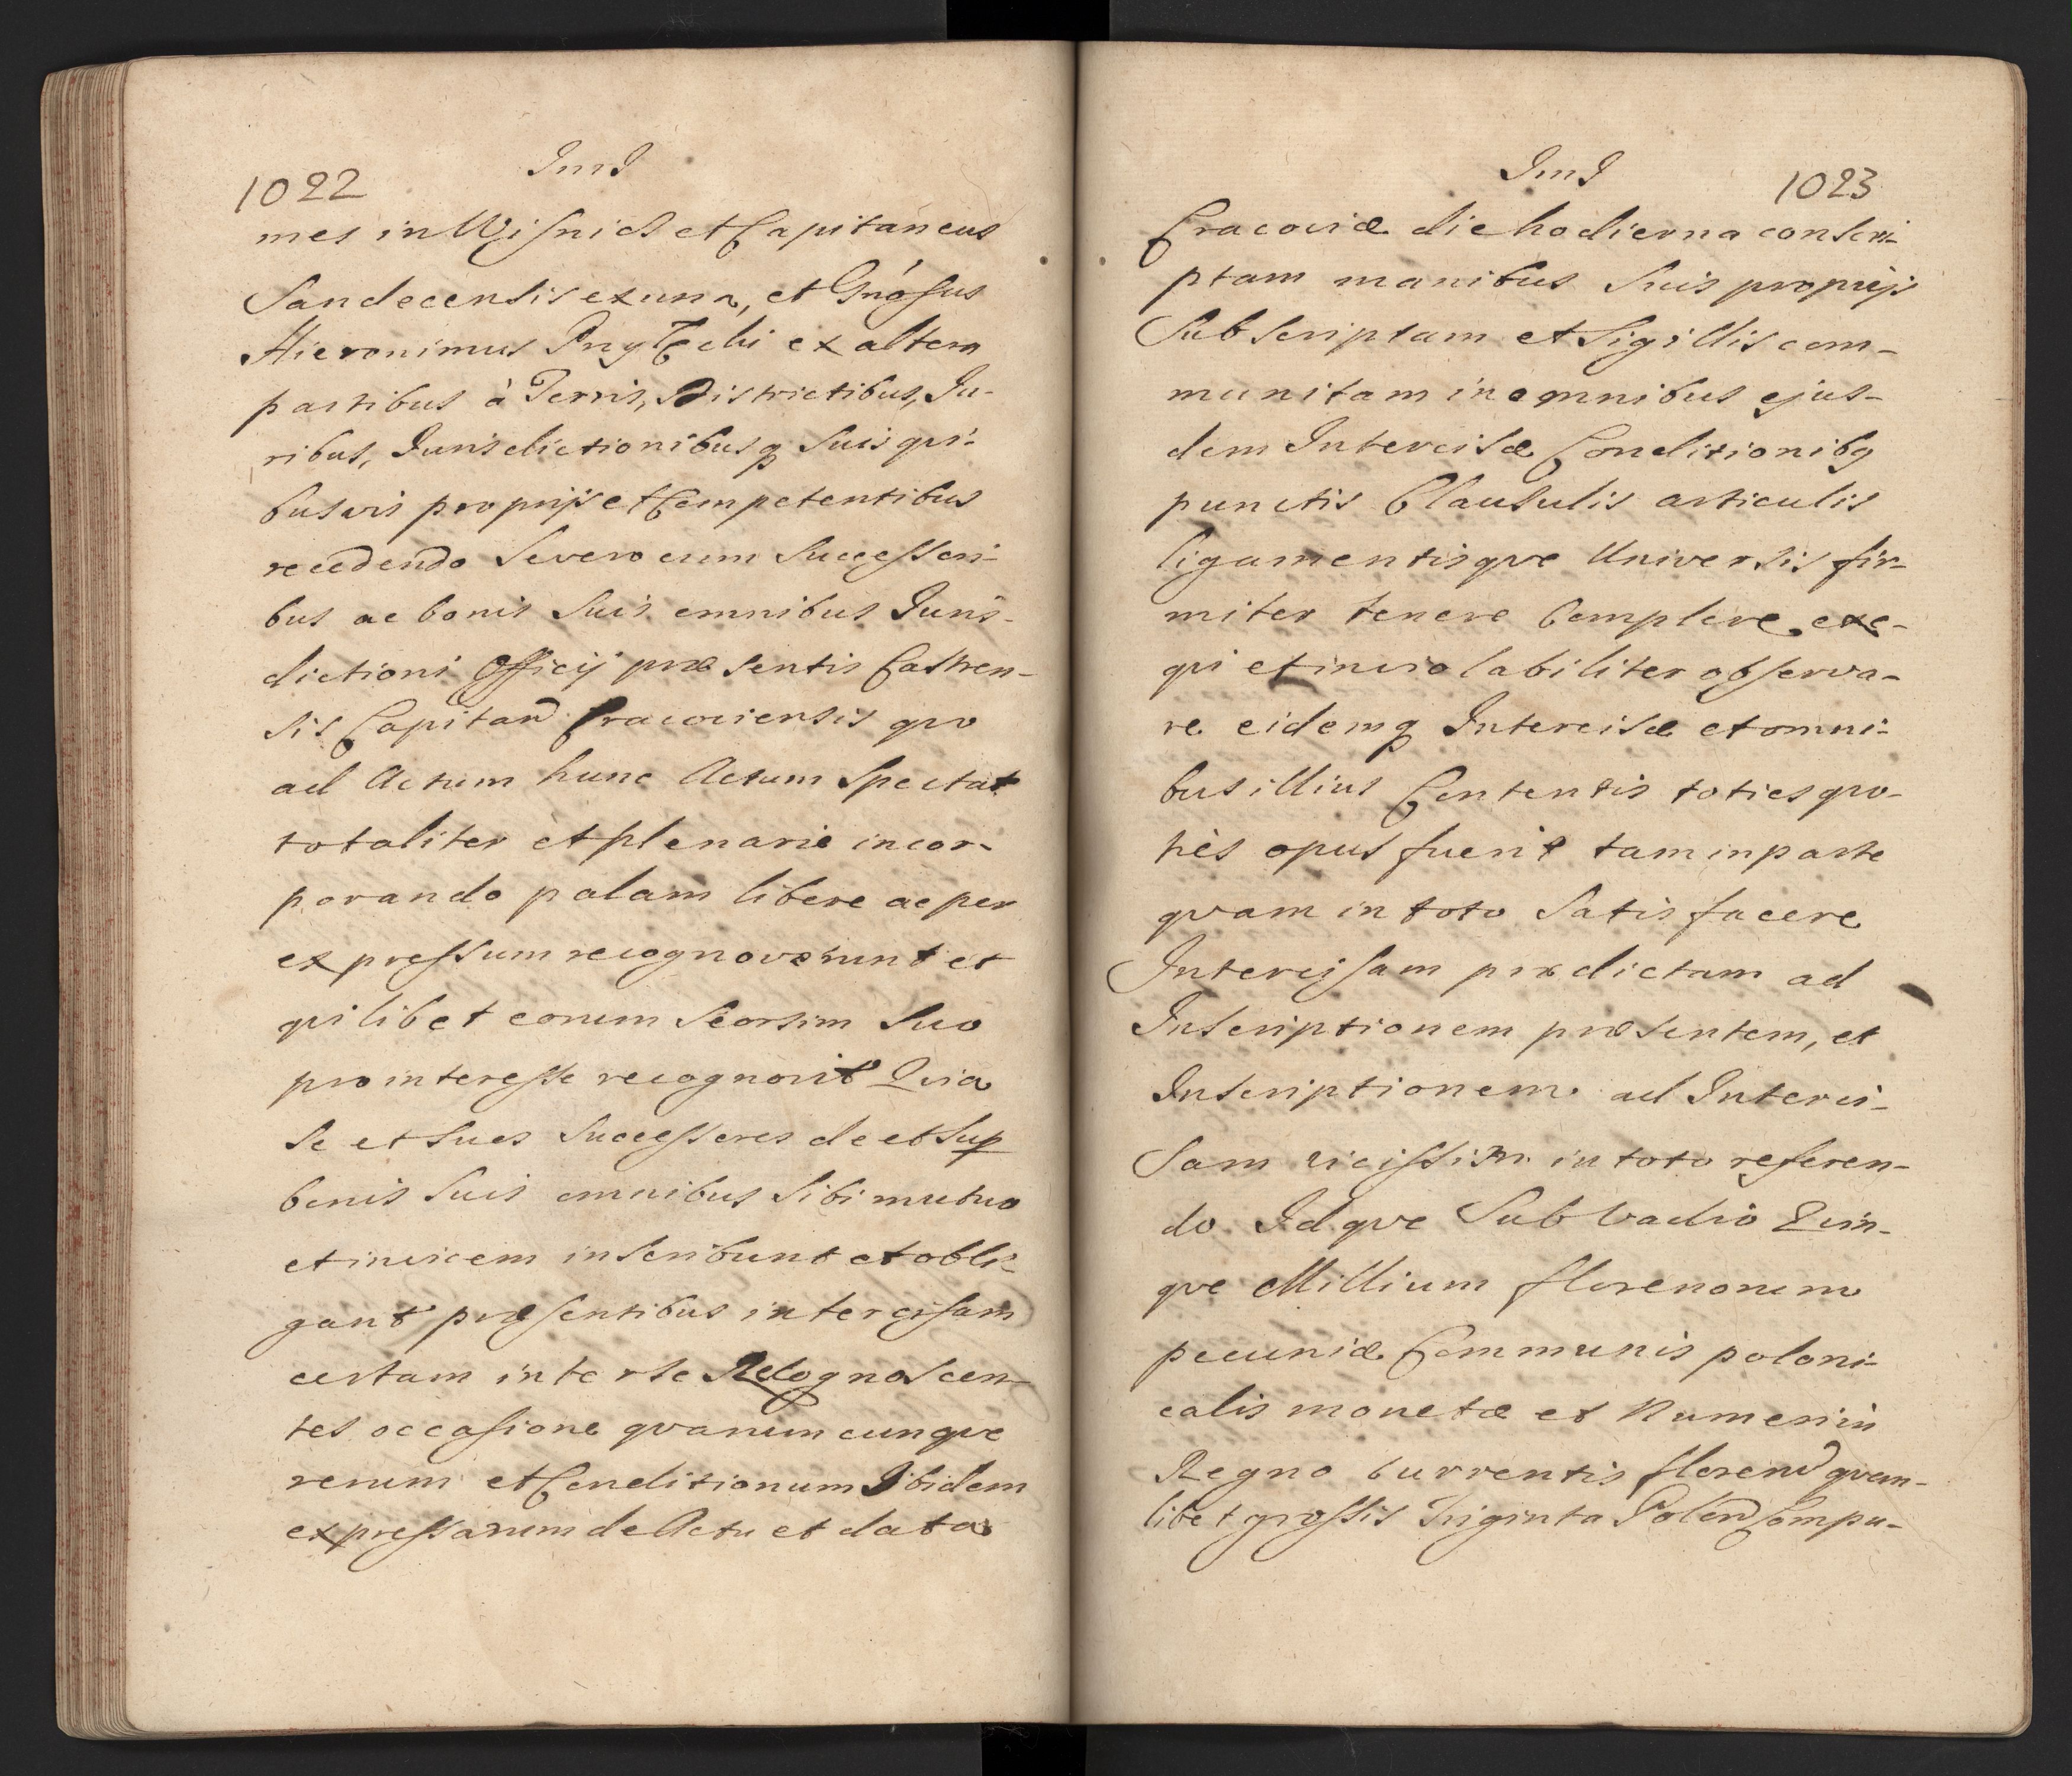 1022
mes in Wisnicz et Capitaneus
Sandecensis ex una, et Gnósus
Hieronimus ex altera
partibus à Terris, Districtibus, Ju-
ribus, Jurisdictionibusq suis qvi-
busvis proprijs et Competentibus
recedendo se vero cum Successori-
bus ac bonis suis omnibus Juris-
dictioni Officij præsentis Castren-
sis Capitan Cracoviensis qvo
ad Actum hunc Actum Spectat
totaliter et plenarie incor-
porando palam libere ac per
expressum recognoverunt et
qvilibet eorum Seorsim Suo
pro interesse recognovit Qvia
Se et Suos Successores de et Sup
bonis Suis omnibus Sibi mutuo
et invicem inscribunt et obli-
gant præsentibus intercisam
certam inter se Recognoscen-
tes occasione qvarumcunqve
rerum et Conditionum Ibidem
expressarum de Actu et data
1023
Cracoviæ die hodierna conscri-
ptam manibus Suis proprijs
Subscriptam et Sigillis com-
munitam in omnibus ejus-
dem Intercisæ Conditionibq
punctis Clausulis articulis
ligamentisqve Universis fir-
miter tenere Complere exe-
qvi et inviolabiliter observa-
re eidemq Intercisæ et omni-
bus illius Contentis toties qvo-
ties opus fuerit tam in parte
qvam in toto Satisfacere
Intercisam prædictam ad
Inscriptionem præsentem, et
Inscriptionem ad Interci-
sam vicissim in toto referen-
do Idqve Sub Vadio Qvin-
qve Millium florenorum
pecuniæ Communis poloni-
calis monetæ et Numeri in
Regno Currentis floren qvem-
libet grossis Triginta Polon Compu-